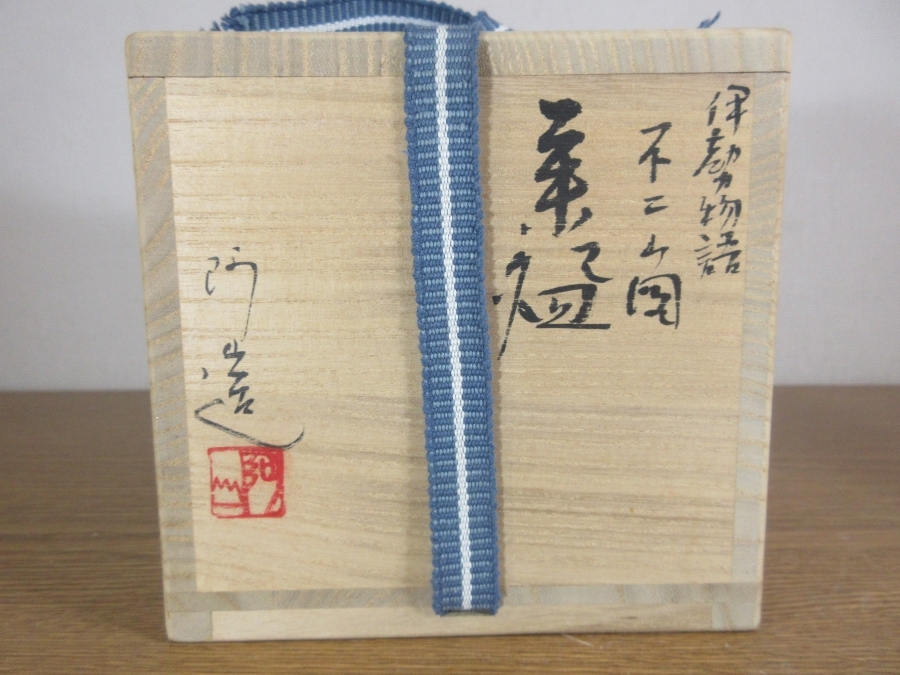 伊勢物語
不二山図
茶盌
阿造